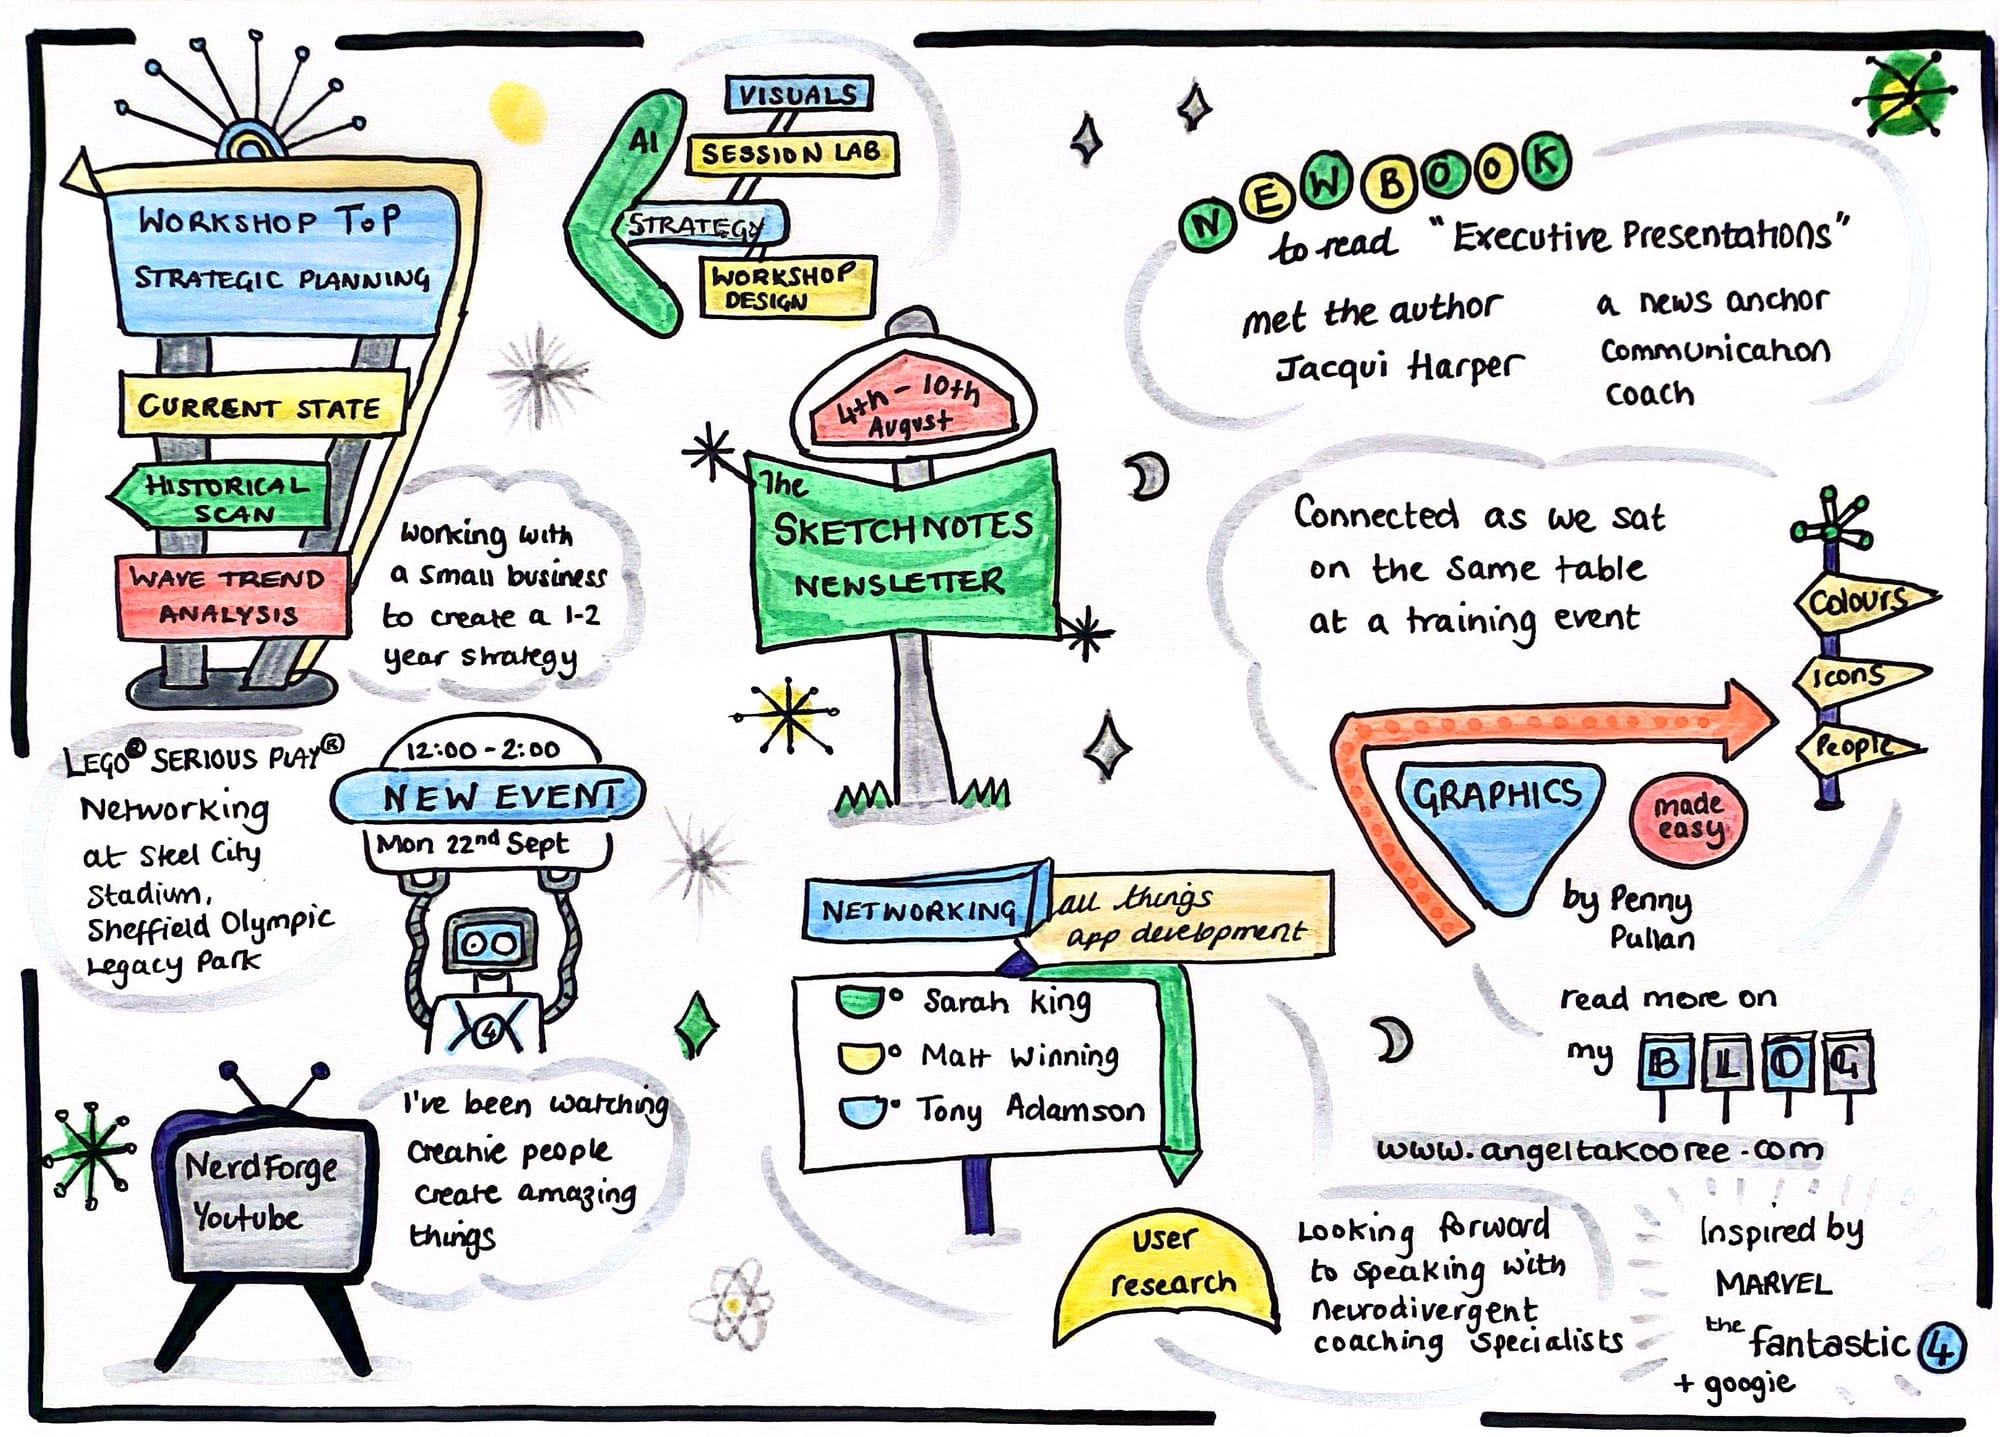 WORKSHOP ToP
STRATEGIC PLANNING
CURRENT STATE
HISTORICAL
SCAN
WAVE TREND
ANALYSIS
working with
a small business
to create a 1-2
year strategy
AI
VISUALS
SESSION LAB
STRATEGY
WORKSHOP
DESIGN
4th - 10th
August
The
SKETCHNOTES
NEWSLETTER
NEW BOOK
to read "Executive Presentations"
met the author
Jacqui Harper
a news anchor
communication
coach
Connected as we sat
on the same table
at a training event
Colours
Icons
People
GRAPHICS
made
easy
by Penny
Pullan
read more on
my BLOG
www.angeltakooree.com
LEGO® SERIOUS PLAY®
Networking
at Steel City
Stadium,
Sheffield Olympic
Legacy Park
12:00 - 2:00
NEW EVENT
Mon 22nd Sept
4
NerdForge
Youtube
I've been watching
creative people
create amazing
things
NETWORKING
all things
app development
Sarah King
Matt Winning
Tony Adamson
User
research
Looking forward
to speaking with
neurodivergent
coaching specialists
Inspired by
MARVEL
the fantastic 4
+ googie